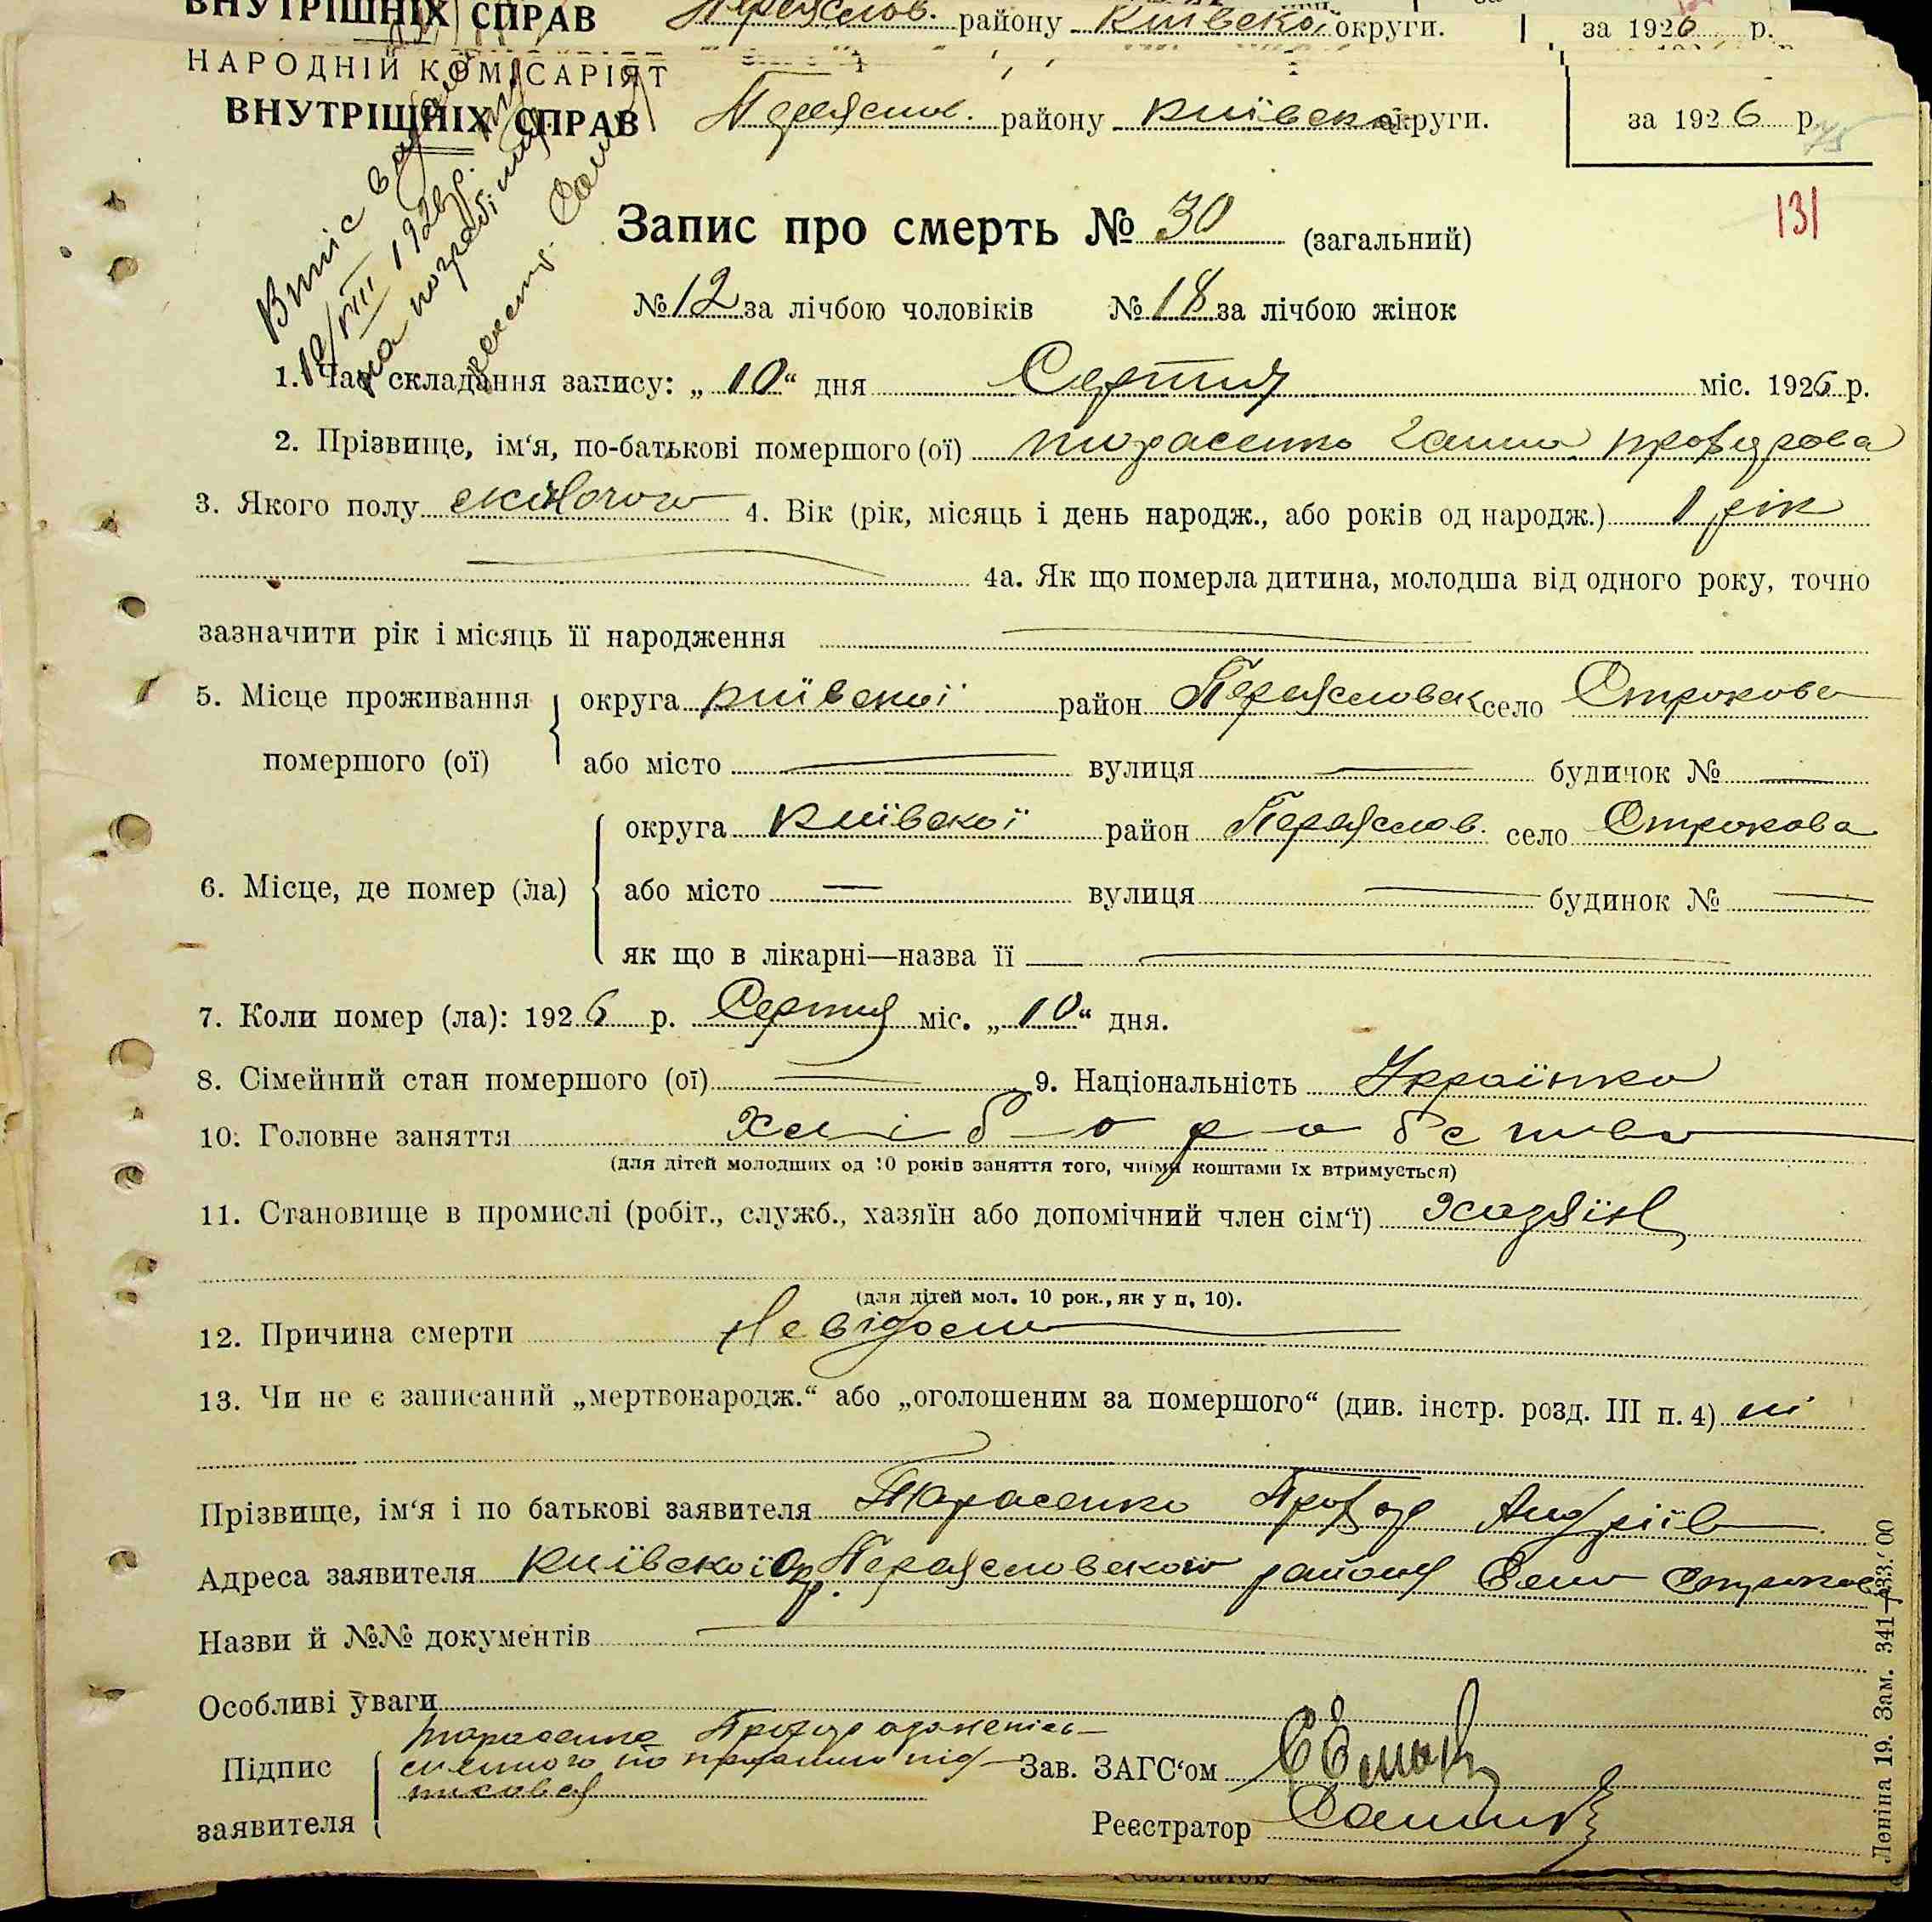 ВНУТРІШНІХ СПРАВ Переяслов. району Київської округи. за 1926 р.
НАРОДНІЙ КОМІСАРІЯТ
ВНУТРІШНІХ СПРАВ Переяслов. району Київської округи. за 1926 р.
75
131
Запис про смерть № 30 (загальний)
№ 12 за лічбою чоловіків № 18 за лічбою жінок
Вніс
10/VIII 1926 р.
на
1. Час складання запису: „ 10 “ дня Серпня міс. 1926 р.
2. Прізвище, ім‘я, по-батькові помершого (ої) Тарасенко Ганна Прохорова
3. Якого полу жіночого 4. Вік (рік, місяць і день народж., або років од народж.) 1 рік
4а. Як що померла дитина, молодша від одного року, точно
зазначити рік і місяць її народження
5. Місце проживання помершого (ої) округа Київської район Переясловськ село Строкова
або місто вулиця будинок №
6. Місце, де помер (ла) округа Київської район Переяслов. село Строкова
або місто вулиця будинок №
як що в лікарні—назва її
7. Коли помер (ла): 1926 р. Серпня міс. „ 10 “ дня.
8. Сімейний стан помершого (ої) 9. Національність Українка
10. Головне заняття Хліборобство
(для дітей молодших од 10 років заняття того, чиїми коштами їх втримується)
11. Становище в промислі (робіт., служб., хазяїн або допомічний член сім‘ї) Хазяїн
(для дітей мол. 10 рок., як у п. 10).
12. Причина смерти Невідома
13. Чи не є записаний „мертвонародж.“ або „оголошеним за помершого“ (див. інстр. розд. III п. 4) ні
Прізвище, ім‘я і по батькові заявителя Тарасенко Прохор Андріїв
Адреса заявителя Київської Окр. Переясловського району Село Строкова
Назви й №№ документів
Особливі уваги
Підпис заявителя Тарасенко Прохор
Зав. ЗАГС‘ом
Реєстратор
Леніна 19. Зам. 341